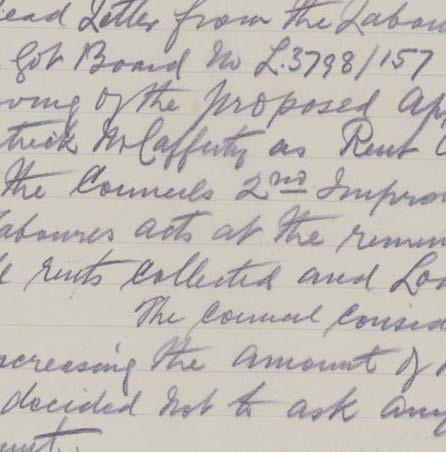 ead Letter from the Labou
Gov Board No L.3798/157
oving of the proposed App
trick McCafferty as Rent C
the Councils 2nd Improv
abourers acts at the remun
rents collected and Loa
The Council Consid
ncreasing the amount of
decided not to ask any